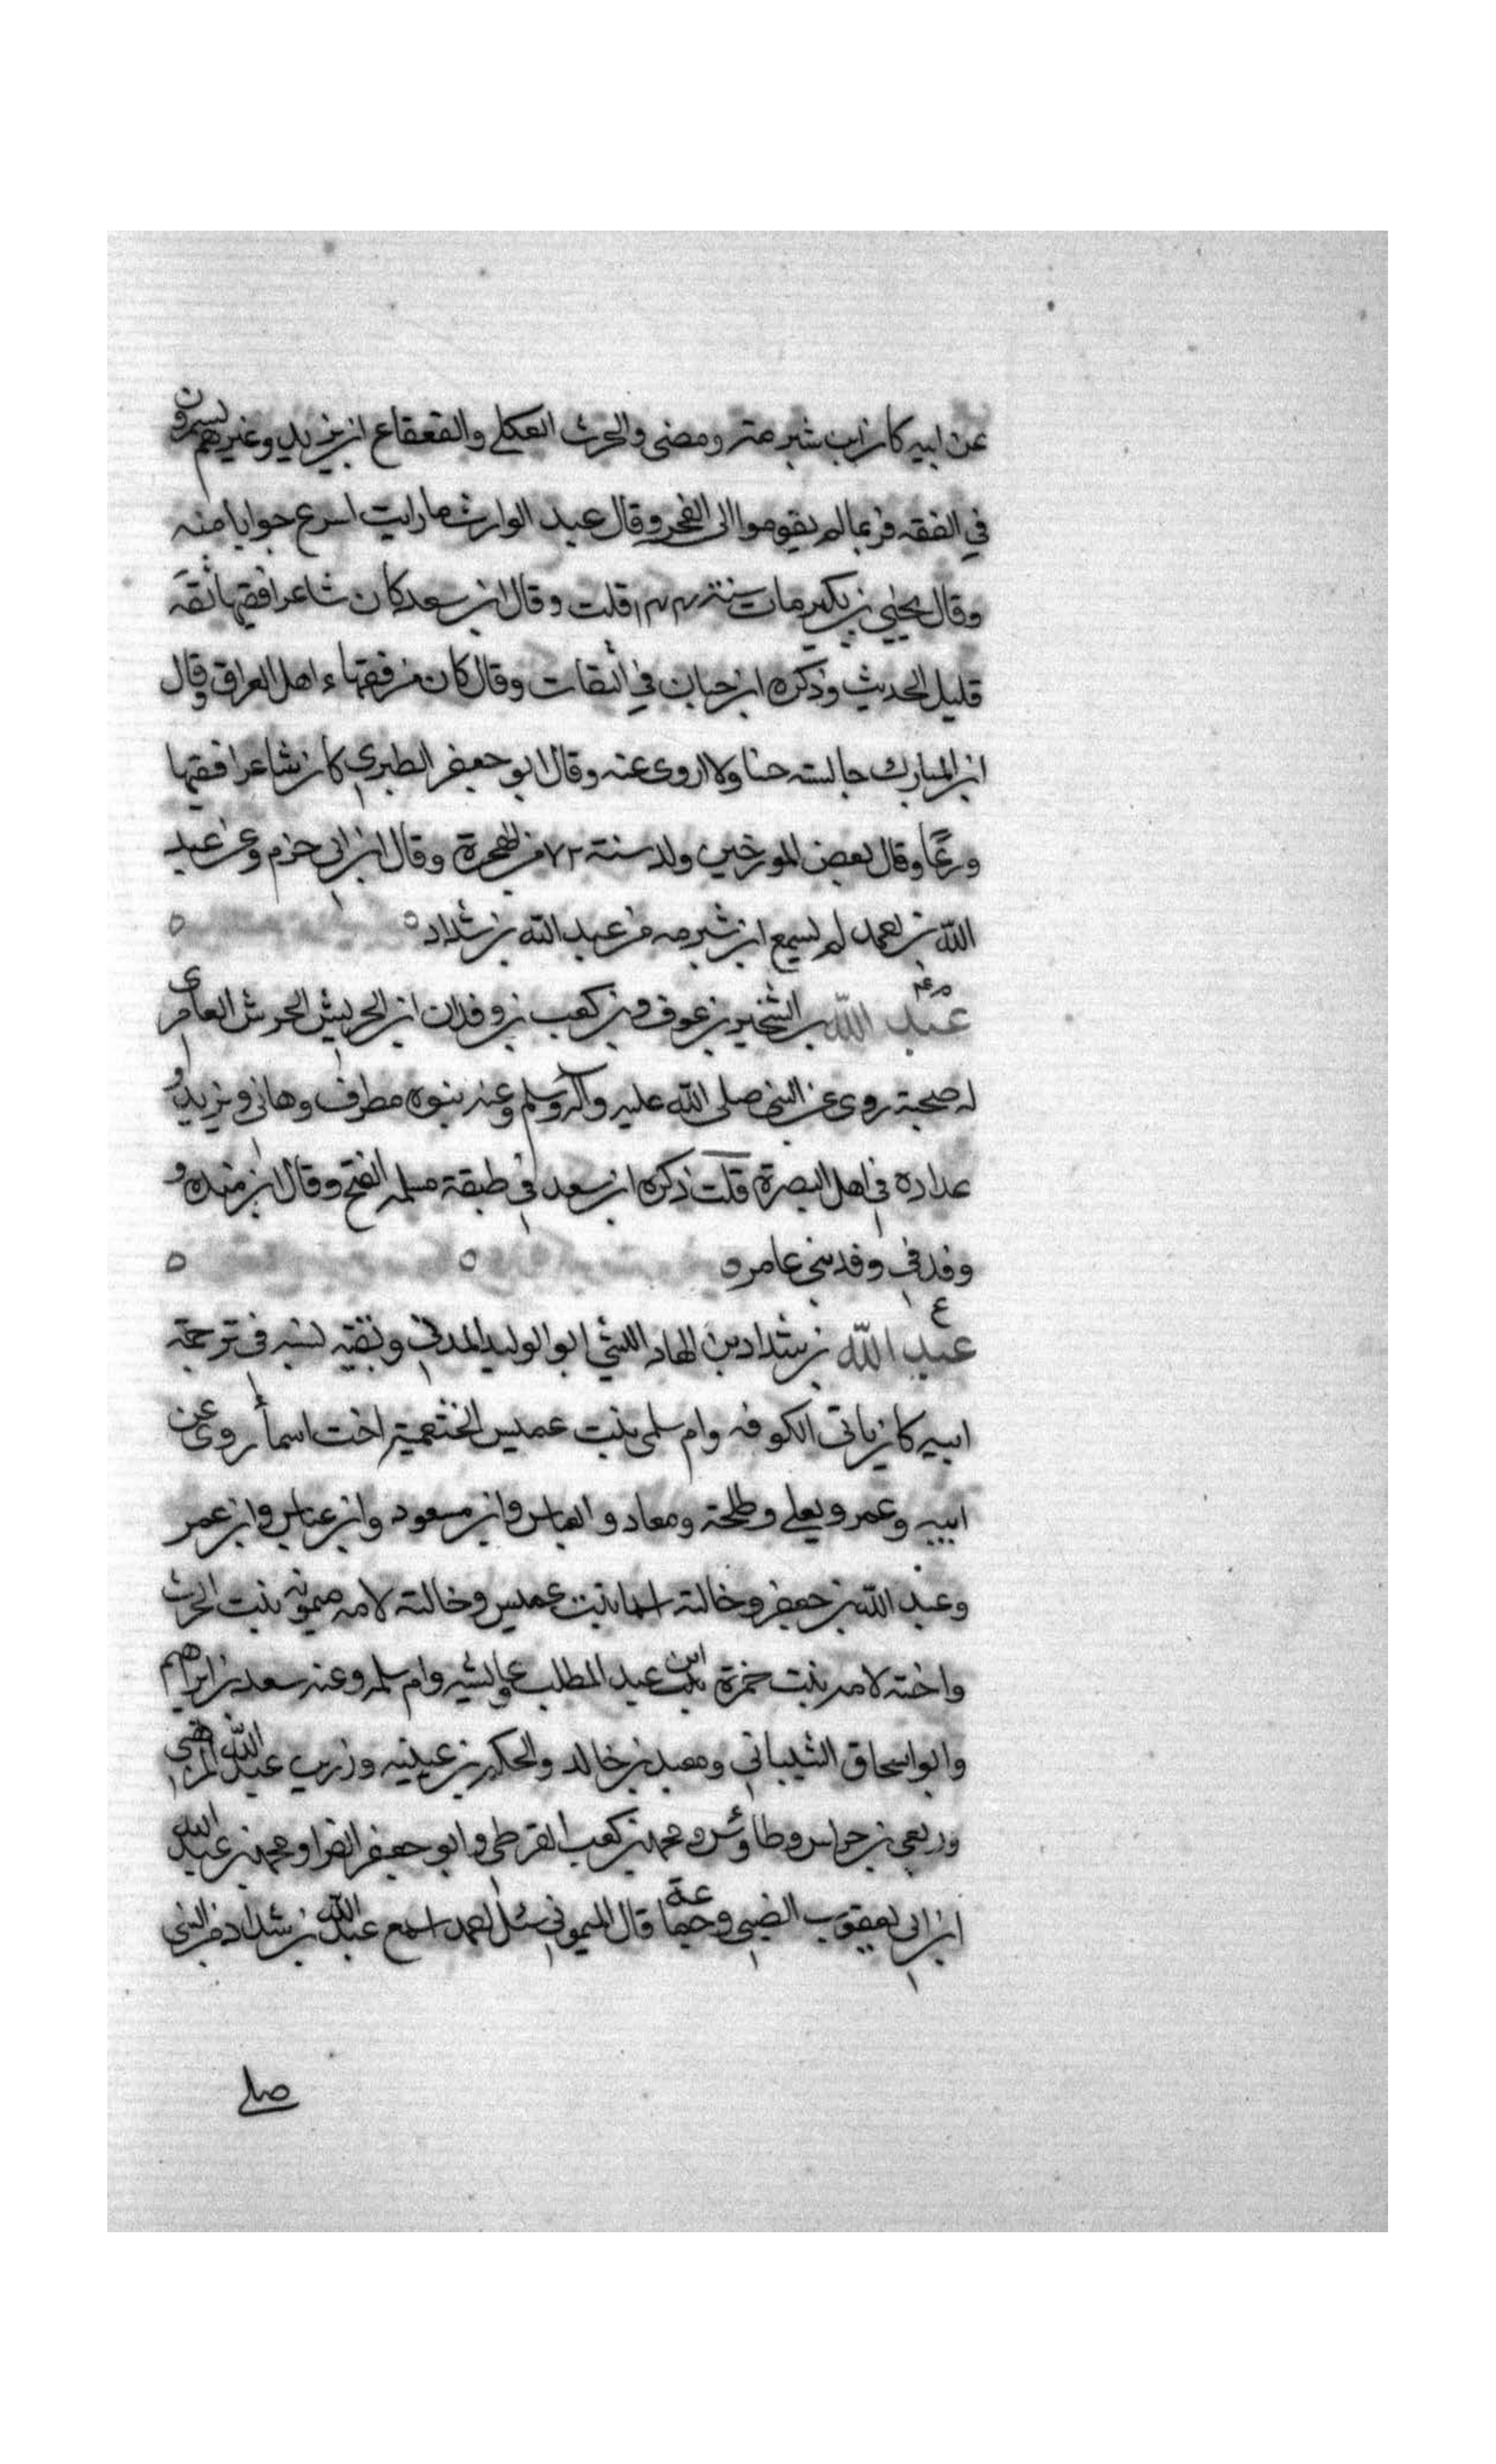 عن ابيه كان ابن شبرمة ومضى والحرث العكلي والقعقاع ابن يزيد وغيرهم يسمرون
في الفقه فربما لم يقوموا الى الفجر وقال عبد الوارث ما رايت اسرع جوابا منه
وقال يحيى بن بكير مات سنة ١٤٤ قلت وقال ابن سعد كان شاعرا فقيها ثقة
قليل الحديث وذكره ابن حبان في الثقات وقال كان من فقهاء اهل العراق وقال
ابن المبارك جالسته حنا ولا اروى عنه وقال ابو جعفر الطبري كان شاعرا فقيها
ورعًا وقال بعض المورخين ولد سنة ٧٢ من الهجرة وقال ابن ابي حزم وعن عبد
الله بن احمد لم يسمع ابن شبرمه من عبد الله بن شداد ه ه
م عم
عبد الله بن الشخير بن عوف بن كعب بن وفدان ابن الحريش الحرشي العامري
له صحبة روى عن النبي صلى الله عليه وآله وسلم وعنه بنوه مطرف وهاني ويزيد و
عداده في اهل البصرة قلت ذكره ابن سعد في طبقة مسلمه الفتح وقال ابن منده و
وفد في وفد بني عامر ه ه ه
ع
عبد الله بن شداد بن الهاد الليثي ابو الوليد المدني وبقيه نسبه في ترجمة
ابيه كان ياتي الكوفه وام سلمى بنت عميس الخثعمية اخت اسمأ روى عن
ابيه وعمر ويعلي وطلحة ومعاد والعباس وابن مسعود وابن عباس وابن عمر
وعبد الله بن جعفر وخالته اسما بنت عميس وخالته لامه ميمونه بنت الحرث
واخته لامه بنت حمزة ابن عبد المطلب وعايشه وام سلمه وعنه سعد بن ابراهيم
وابو اسحاق الشيباني ومعبد بن خالد والحكم بن عيينه وذر بن عبد الله المرهبي
وربعي بن حراس وطاوس ومحمد بن كعب القرظي وابو جعفر الفرا ومحمد بن عبد الله
ابن ابي يعقوب الضبي وجماعة قال الميموني سئل احمد اسمع عبد الله بن شداد من النبي
صلى